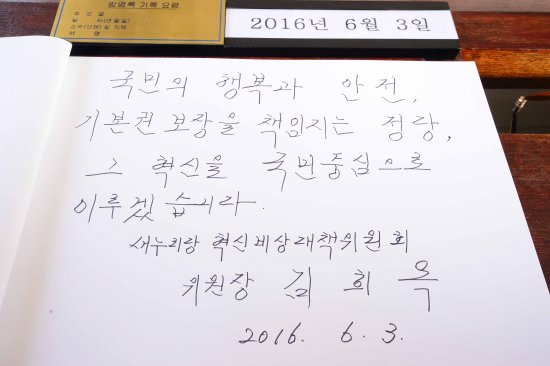 방명록 기록 요령
주 요 글
날 짜(년월일)
소속(단체) 및 직책
서 명
2016년 6월 3일
국민의 행복과 안전,
기본권 보장을 책임지는 정당,
그 혁신을 국민중심으로
이루겠습니다.
새누리당 혁신비상대책위원회
위원장 김 희 옥
2016. 6. 3.